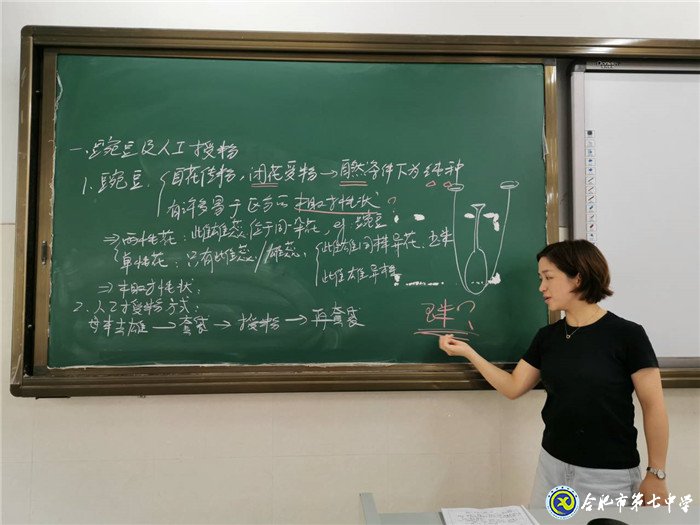 一. 豌豆及人工授粉
1. 豌豆. 自花传粉, 闭花受粉→自然条件下为纯种
有许多易于区分的相对性状
⇒两性花: 雌雄蕊位于同一朵花, eg: 豌豆
单性花: 只有雌蕊/雄蕊. 雌雄同株异花. 玉米
雌雄异株
⇒相对性状:
2. 人工授粉方式:
母本去雄→套袋→授粉→再套袋
?
合肥市第七中学